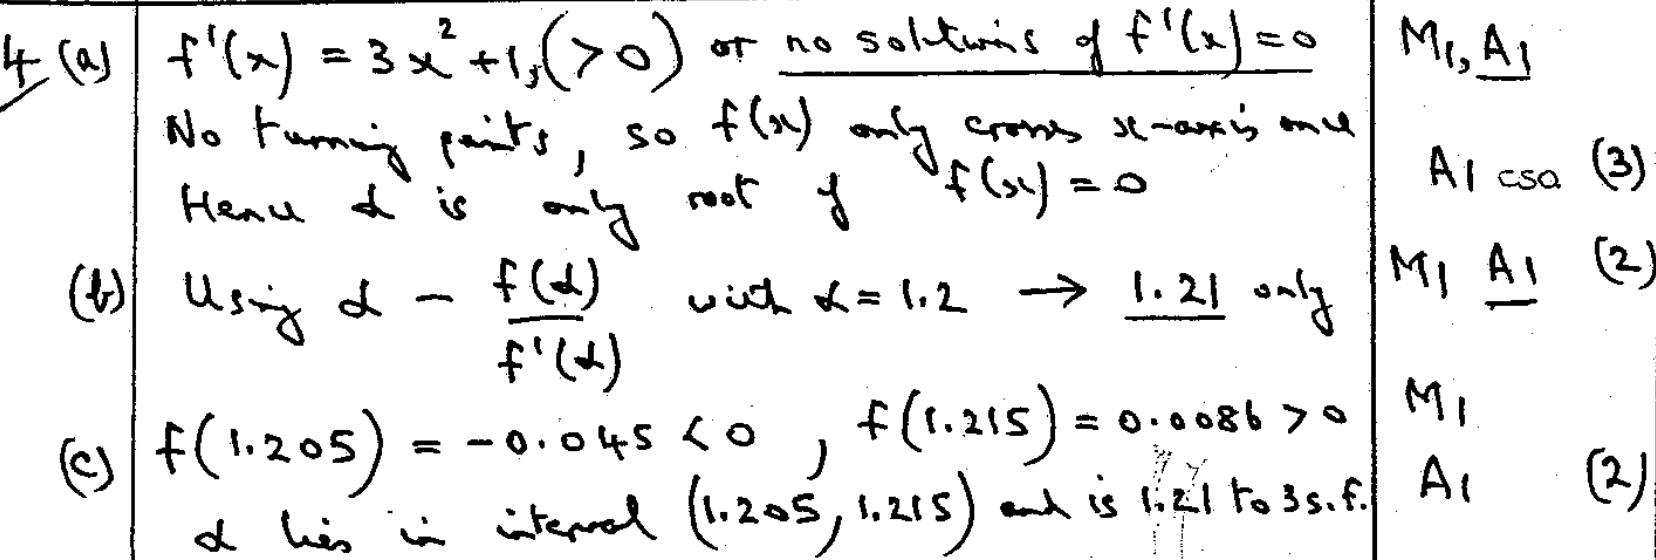 4 (a) f'(x) = 3x² + 1, (>0) or no solutions of f'(x) = 0 M1, A1
No turning points, so f(x) only crosses x-axis once
Hence α is only root of f(x) = 0 A1 cso (3)
(b) Using α - f(α)/f'(α) with α = 1.2 → 1.21 only M1 A1 (2)
(c) f(1.205) = -0.045 < 0, f(1.215) = 0.0086 > 0 M1
α lies in interval (1.205, 1.215) and is 1.21 to 3 s.f. A1 (2)